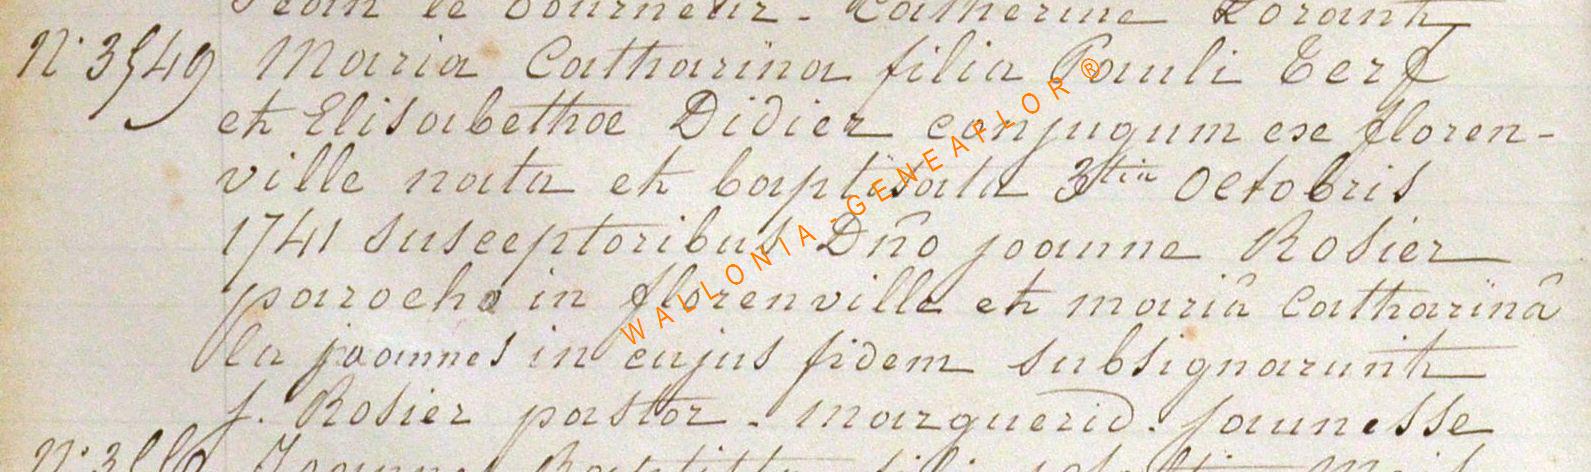 Jean le Tourneur - Catherine Lorant
N° 3549 Maria Catharina filia Pauli Terf
et Elisabethae Didier conjugum ex floren-
ville nata et baptisata 3tia Octobris
1741 susceptoribus Dño joanne Rosier
parocho in florenville et mariâ Catharinâ
la joannes in cujus fidem subsignarunt
j. Rosier pastor - marguerid. jaunesse
WALLONIA-GENEAFLOR ®
Joannes Baptista